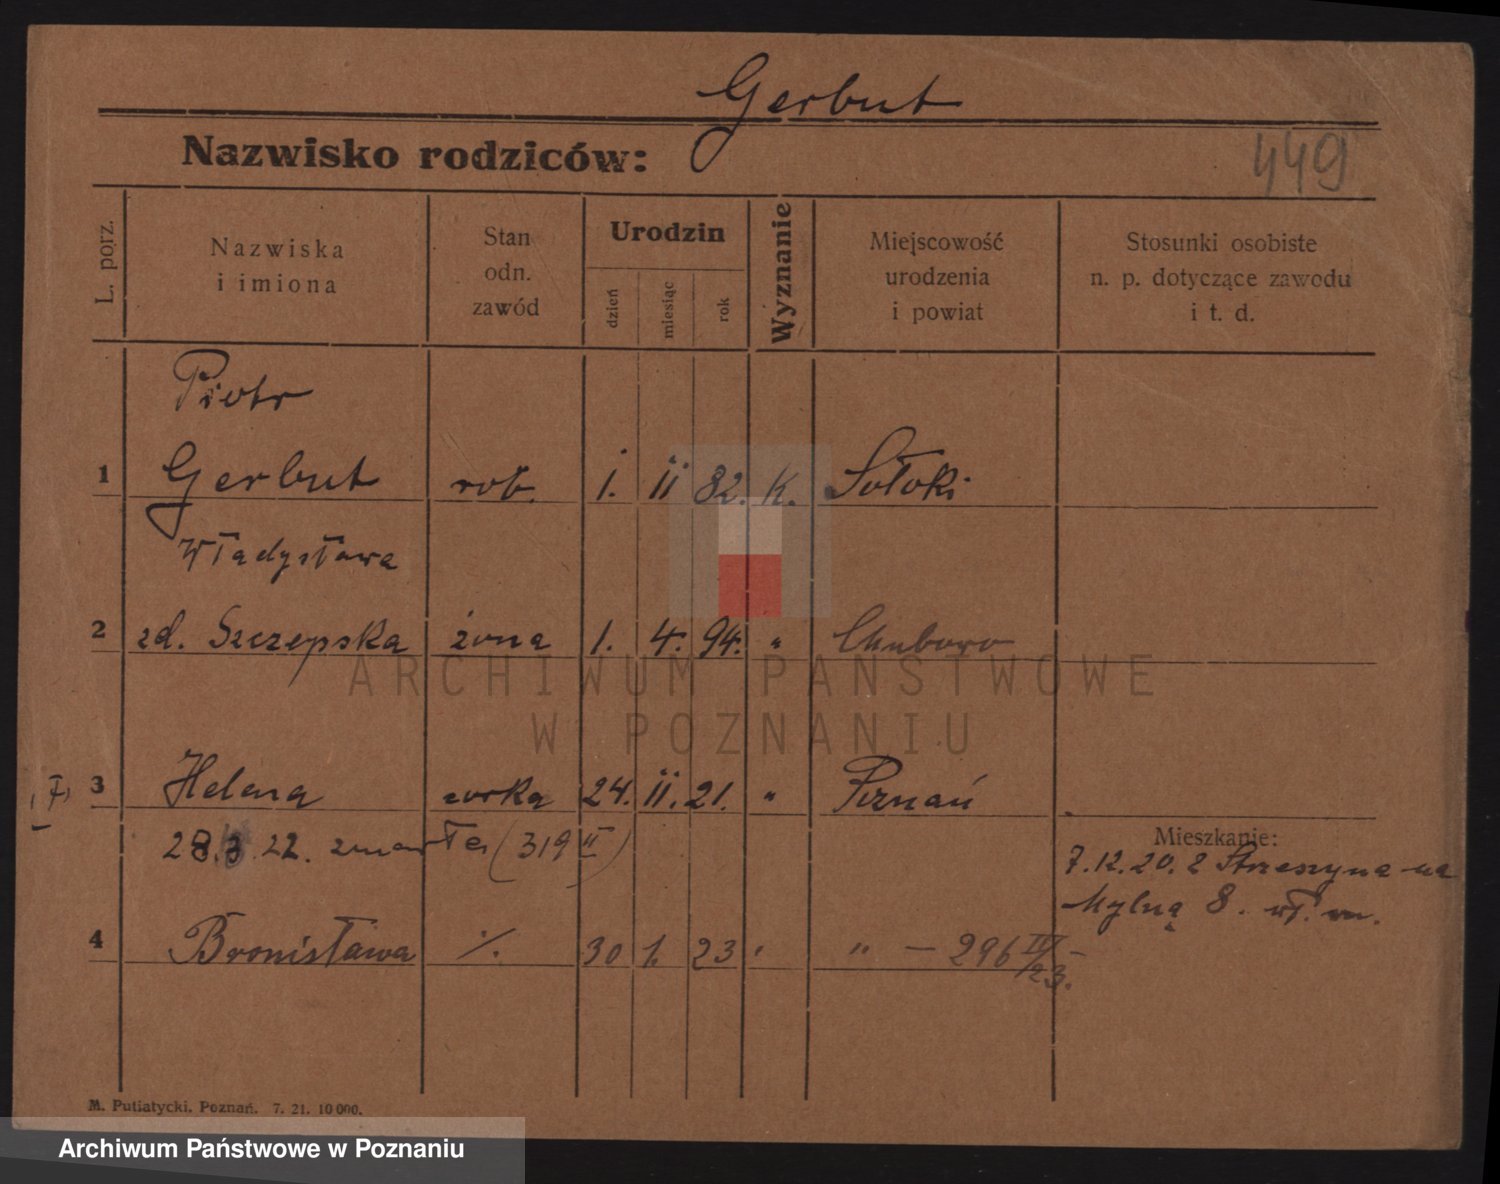 Gerbut
Nazwisko rodziców:
449
L. porz.
Nazwiska
i imiona
Stan
odn.
zawód
Urodzin
dzień
miesiąc
rok
Wyznanie
Miejscowość
urodzenia
i powiat
Stosunki osobiste
n. p. dotyczące zawodu
i t. d.
Piotr
1 Gerbut rob. 1. ii 82. K. Sołoki
Władysława
2 zd. Szczepska żona 1. 4. 94. "
ARCHIWUM PAŃSTWOWE
W POZNANIU
3 Helena corka 24. ii. 21. " Poznań
22. zmarła (319 II)
Mieszkanie:
7.12.20. z Strzeszyna na
Mylną 8.
4 Bronisława ./. 30 1. 23 " " — 296 IV/23.
M. Putiatycki, Poznań. 7. 21. 10 000.
Archiwum Państwowe w Poznaniu